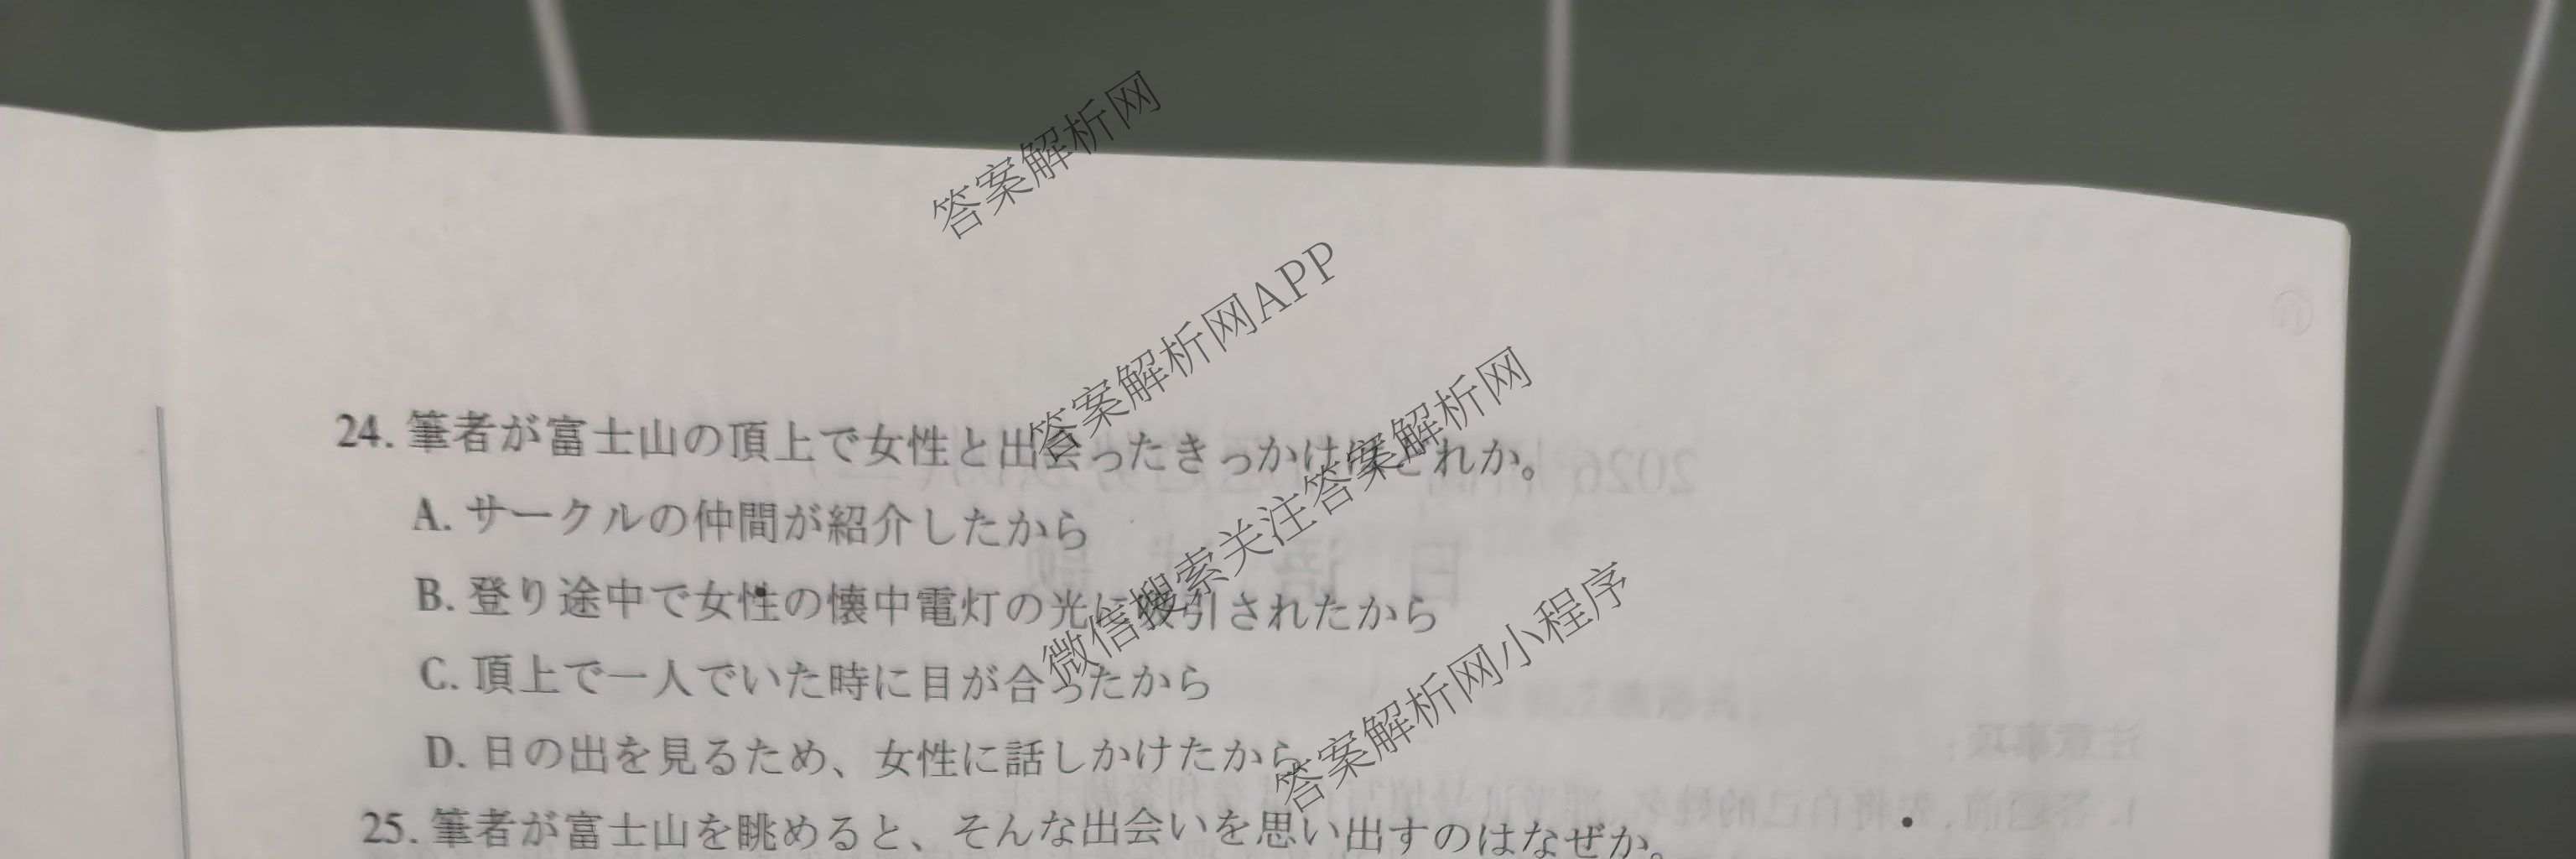 答案解析网
答案解析网APP
24. 筆者が富士山の頂上で女性と出会ったきっかけはどれか。
微信搜索关注答案解析网
A. サークルの仲間が紹介したから
B. 登り途中で女性の懐中電灯の光に吸引されたから
答案解析网小程序
C. 頂上で一人でいた時に目が合ったから
D. 日の出を見るため、女性に話しかけたから
25. 筆者が富士山を眺めると、そんな出会いを思い出すのはなぜか。